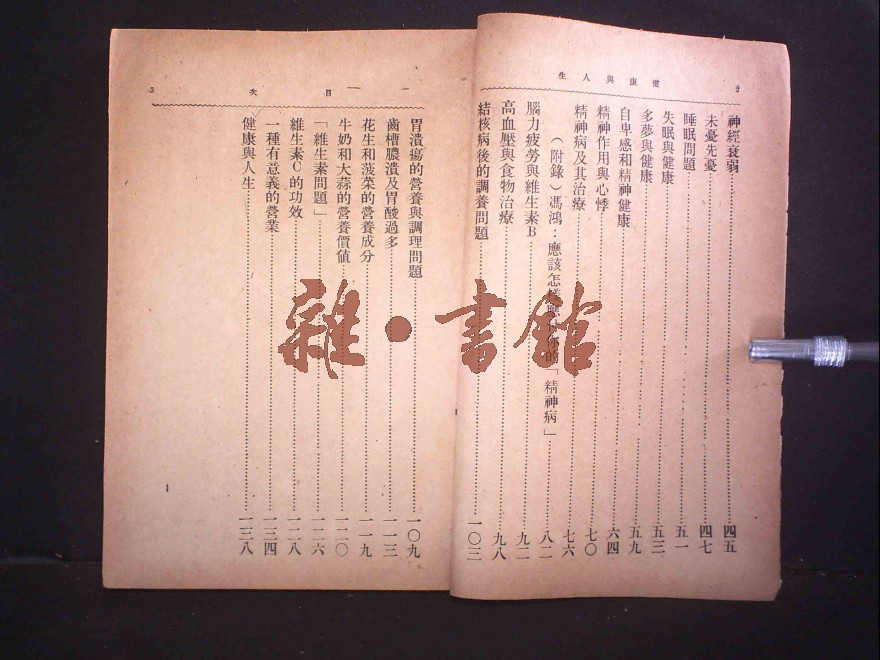 健康與人生
2
神經衰弱……四五
未憂先憂……四七
睡眠問題……五一
失眠與健康……五三
多夢與健康……五九
自卑感和精神健康……六四
精神作用與心悸……七〇
精神病及其治療……七六
（附錄）馮鴻：應該怎樣應付你的「精神病」……八二
腦力疲勞與維生素B……九二
高血壓與食物治療……九八
結核病後的調養問題……一〇三
目次
3
胃潰瘍的營養與調理問題……一〇九
齒槽膿潰及胃酸過多……一一三
花生和菠菜的營養成分……一一九
牛奶和大蒜的營養價値……一二〇
「維生素問題」……一二六
維生素C的功效……一二八
一種有意義的營業……一三四
健康與人生……一三八
雜·書館